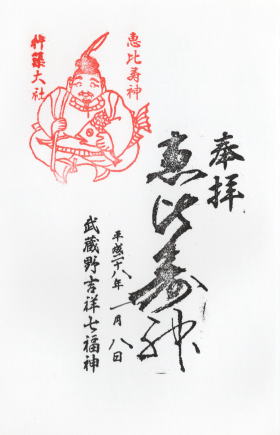 奉拝
恵比寿神
平成二十八年一月八日
武蔵野吉祥七福神
恵比寿神
杵築大社